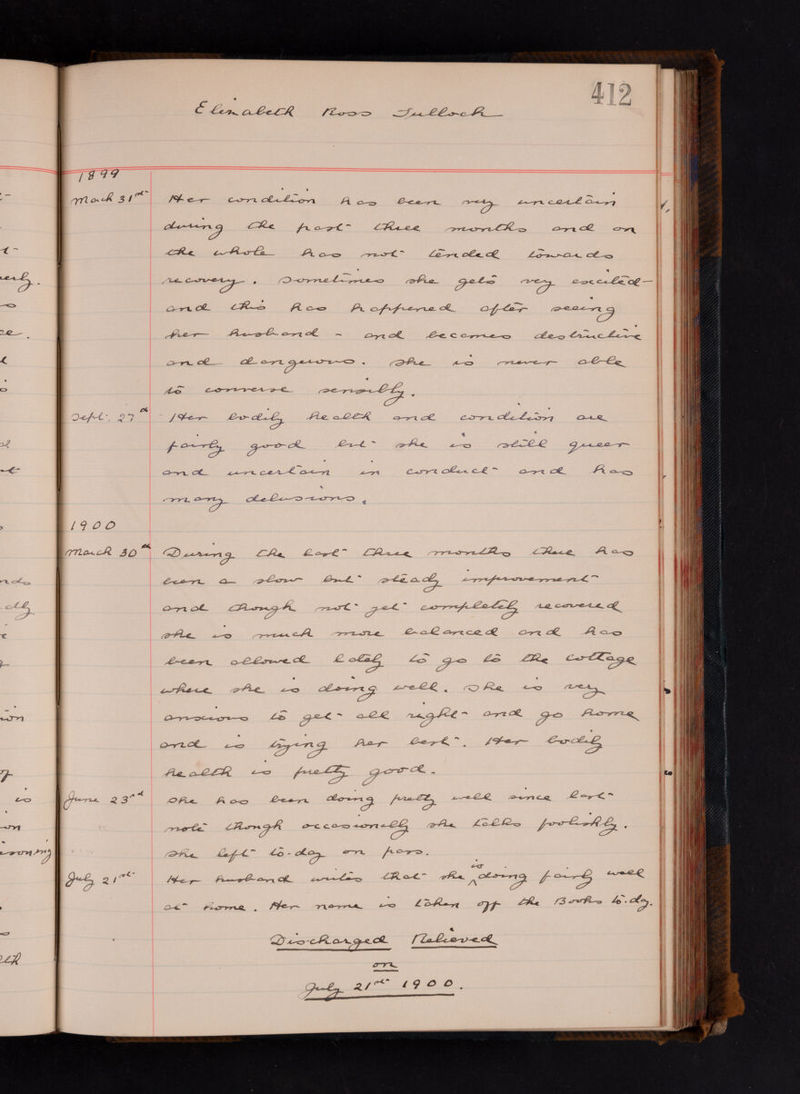 412
Elizabeth Ross Tulloch
1899
March 31st Her condition has been very uncertain
during the past three months and on
the whole has not tended towards
recovery. Sometimes she gets very excited -
and this has happened after seeing
her husband - and becomes destructive
and dangerous. She is never able
to converse sensibly.
Sept. 27th Her bodily health and condition are
fairly good but she is still queer
and uncertain in conduct and has
many delusions.
1900
March 30th During the last three months there has
been a slow but steady improvement
and though not yet completely recovered
she is much more balanced and has
been allowed lately to go to the cottage
where she is doing well. She is very
anxious to get all right and go home
and is trying her best. Her bodily
health is pretty good.
June 23rd She has been doing pretty well since last
note though occasionally she talks foolishly.
She left to-day on pass.
July 21st Her husband writes that she is doing fairly well
at home. Her name is taken off the Books to-day.
Discharged Relieved
on
July 21st 1900.